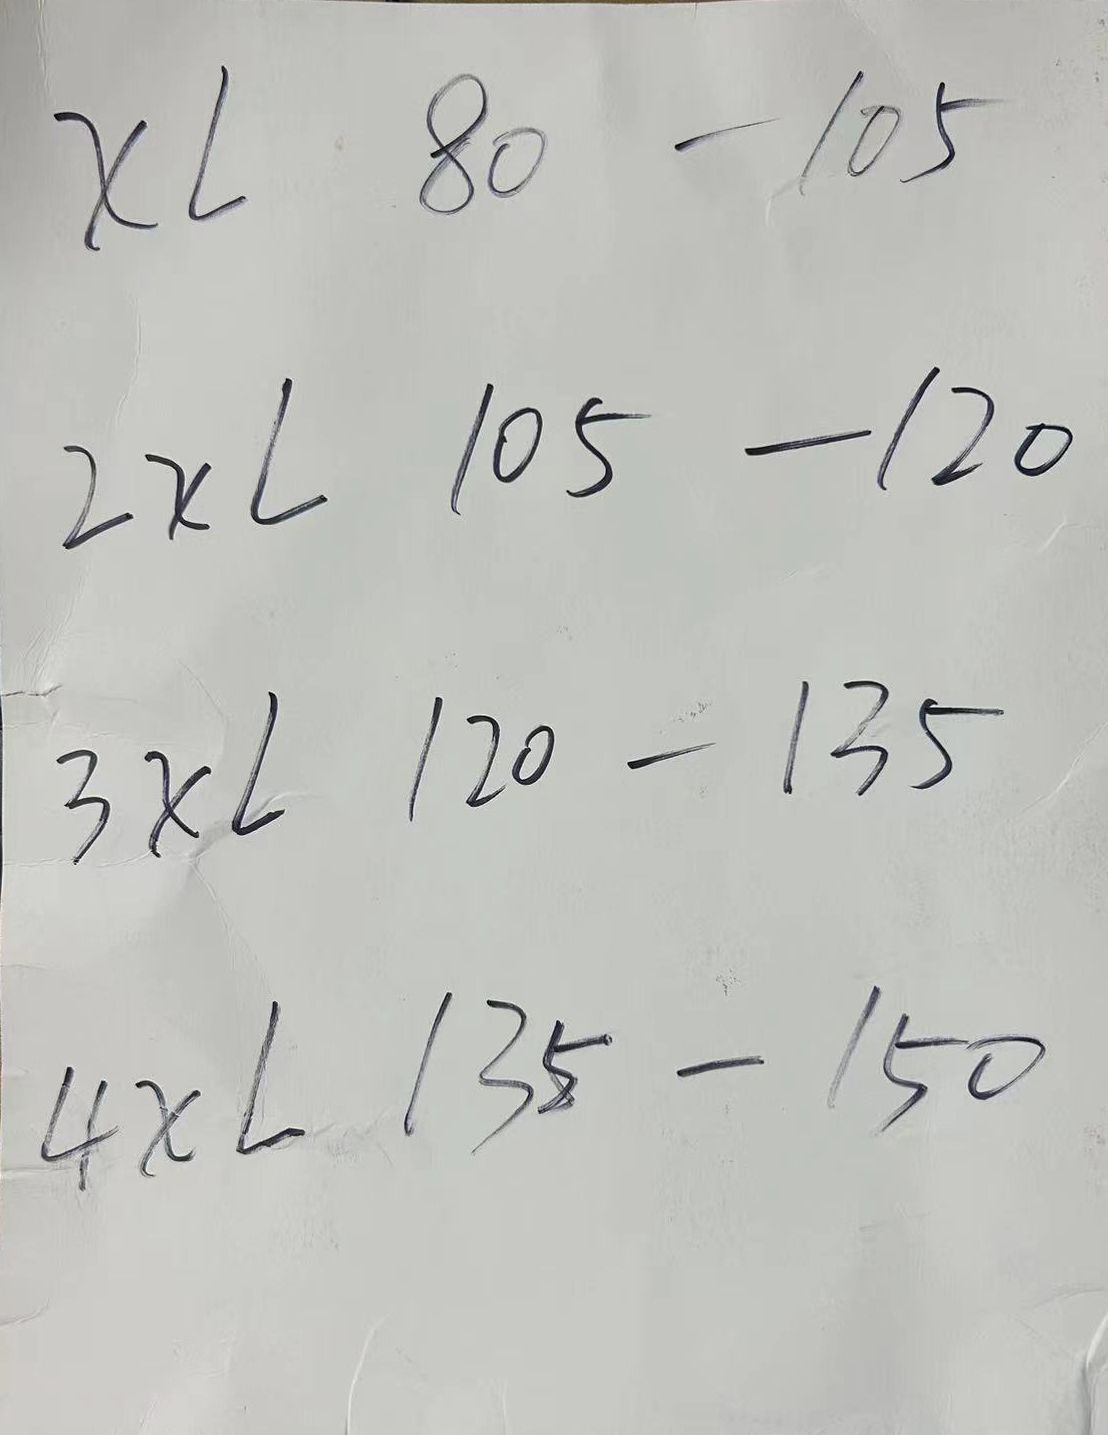 XL 80 - 105
2XL 105 - 120
3XL 120 - 135
4XL 135 - 150